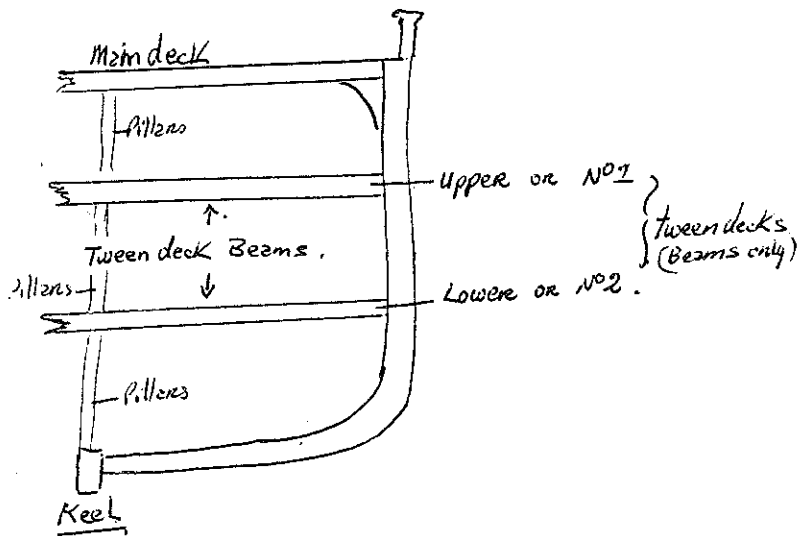 Main deck
Pillars
Upper or No 1
Tween deck Beams.
tween decks
(Beams only)
Pillars
Lower or No 2.
Pillars
Keel